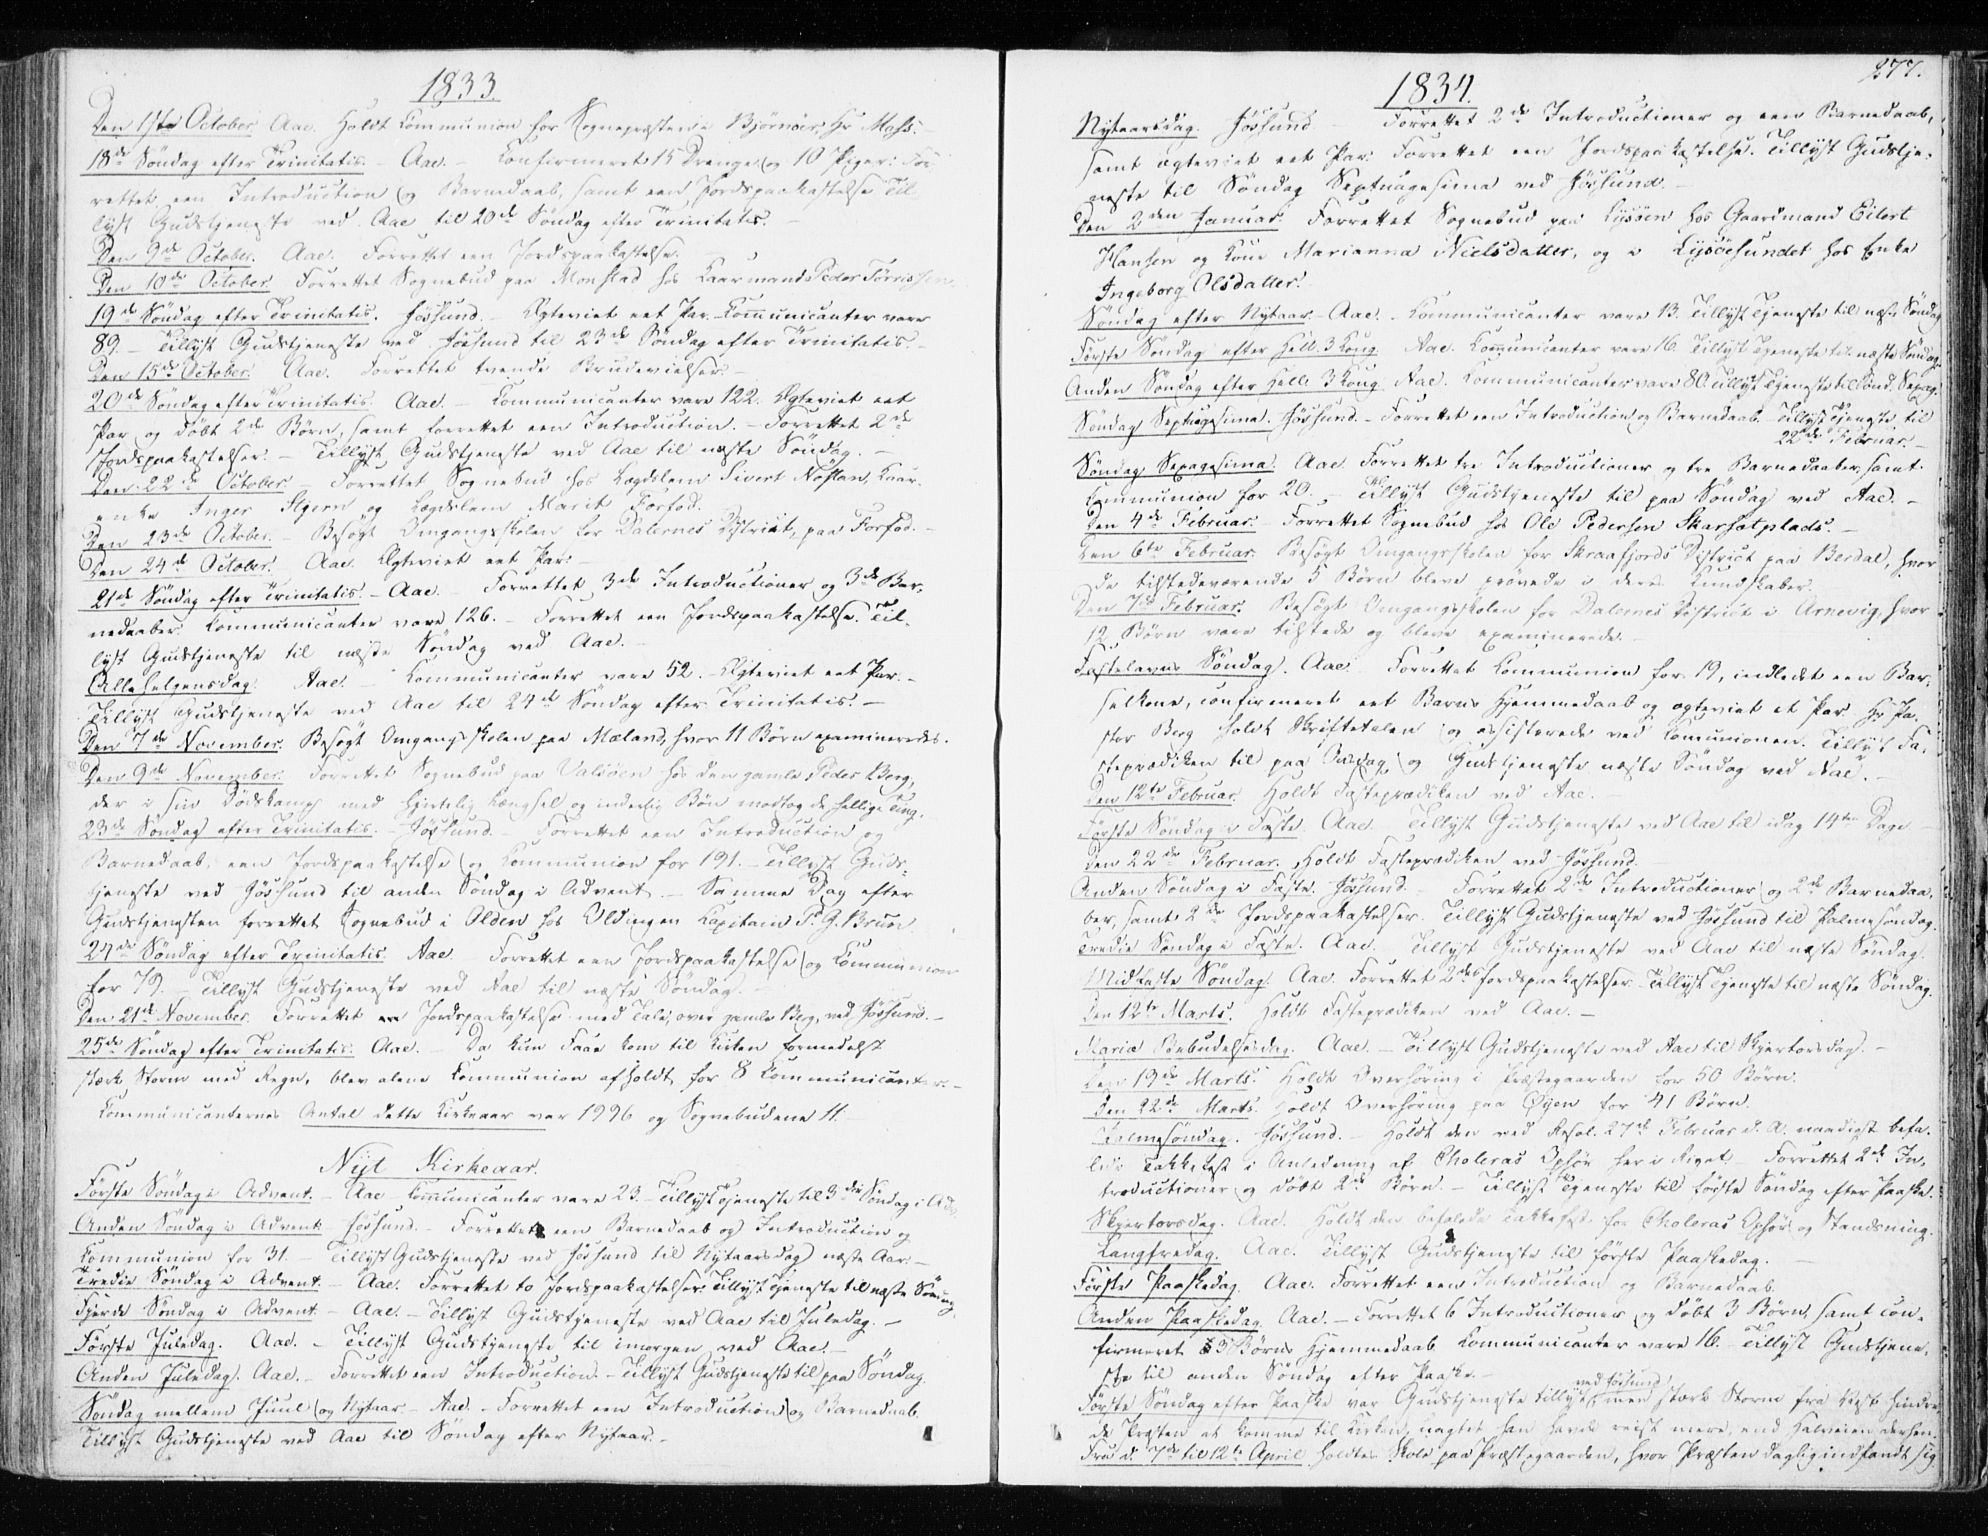 1833.
Den 1ste October. Aae. Holdt Communion for Sognepræsten i Bjørnøer, Hr Mohs.
18de Søndag efter Trinitatis. – Aae. – Confirmeret 15 Drenge og 10 Piger: For-
rettet een Introduction og Barnedaab, samt een Jordspaakastelse Til-
lyst Gudstjeneste ved Aae til 20de Søndag efter Trinitatis. –
Den 9de October. Aae. Forrettet een Jordspaakastelse.
Den 10de October. Forrettet Sognebud paa Monstad hos Kaarmand Peder Tørrissen.
19de Søndag efter Trinitatis. Jøssund. – Ægteviet eet Par. – Communicanter vare
89. – Tillyst Gudstjeneste ved Jøssund til 23de Søndag efter Trinitatis. –
Den 15de October. Aae. Forrettet tvende Brudevielser. –
20de Søndag efter Trinitatis. Aae. – Communicanter vare 122. Ægteviet eet
Par og døbt 2de Børn, samt forrettet een Introduction. – Forrettet 2de
Jordspaakastelser. – Tillyst Gudstjeneste ved Aae til næste Søndag. –
Den 22de October. – Forrettet Sognebud hos Lægdslem Sivert Nøstan, Kaar-
enke Inger Stjern og Lægdslem Marit Forfod.
Den 23de October. – Besøgt Omgangsskolen for Dalernes District, paa Forfod. –
Den 24de October. Aae. Ægteviet eet Par. –
21de Søndag efter Trinitatis. – Aae. Forrettet 3de Introductioner og 3de Bar-
nedaaber. Communicanter vare 126. – Forrettet een Jordspaakastelse. Til-
lyst Gudstjeneste til næste Søndag ved Aae. –
Alle helgensdag. Aae. – Communicanter vare 52. – Ægteviet eet Par. –
Tillyst Gudstjeneste ved Aae til 24de Søndag efter Trinitatis. –
Den 7de November. Besøgt Omgangsskolen paa Mæland, hvor 11 Børn examineredes.
Den 9de November. Forrettet Sognebud paa Valsøen hos den gamle Peder Berg,
der i sin Dødskamp med hjertelig Længsel og inderlig Bøn modtog de hellige Ting.
23de Søndag efter Trinitatis. – Jøssund. – Forrettet een Introduction og
Barnedaab, een Jordspaakastelse og Communion for 191. – Tillyst Guds-
tjeneste ved Jøssund til anden Søndag i Advent. – Samme Dag efter
Gudstjenesten forrettet Sognebud i Olden hos Oldingen Capitain P. G. Bruun.
24de Søndag efter Trinitatis. Aae. – Forrettet een Jordspaakastelse og Communion
for 79. – Tillyst Gudstjeneste ved Aae til næste Søndag. –
Den 21de November. Forrettet een Jordspaakastelse med Tale, over gamle Berg, ved Jøssund. –
25de Søndag efter Trinitatis. Aae. – Da kun Faae kom til Kirken formedelst
stærk Storm med Regn, blev alene Communion afholdt for 8 Communicanter. –
Communicanternes Antal dette Kirkeaar var 1996 og Sognebudene 11.
Nyt Kirkeaar.
Første Søndag i Advent. – Aae – Communicanter vare 23. – Tillyst Tjeneste til 3die Søndag i Adv.
Anden Søndag i Advent. Jøssund. – Forrettet een Barnedaab og Introduction og
Communion for 31. – Tillyst Gudstjeneste ved Jøssund til Nytaarsdag næste Aar. –
Tredie Søndag i Advent. – Aae. Forrettet to Jordspaakastelser. Tillyst Tjeneste til næste Søndag.
Fjerde Søndag i Advent. – Aae. – Tillyst Gudstjeneste ved Aae til Juledag. –
Første Juledag. Aae. – Tillyst Gudstjeneste til imorgen ved Aae. –
Anden Juledag. Aae. – Forrettet een Introduction. – Tillyst Gudstjeneste til paa Søndag.
Søndag mellem Juul og Nytaar – Aae. – Forrettet een Introduction og Barnedaab.
Tillyst Gudstjeneste ved Aae til Søndag efter Nytaar. –
277.
1834.
Nytaarsdag. Jøssund – Forrettet 2de Introductioner og een Barnedaab,
samt ægteviet eet Par. Forrettet een Jordspaakastelse. Tillyst Gudstje-
neste til Søndag Septuagesima ved Jøssund. –
Den 2den Januar. Forrettet Sognebud paa Lysøen hos Gaardmand Eilert
Hansen og Kone Marianna Nielsdatter, og i Lysøesundet hos Enke
Ingeborg Olsdatter.
Søndag efter Nytaar. – Aae. – Communicanter vare 13. Tillyst Tjeneste til næste Søndag
Første Søndag efter Hell. 3 Kong. Aae. Communicanter vare 16. Tillyst Tjeneste til næste Søndag.
Anden Søndag efter Helli 3 Kong. Aae. Communicanter vare 80. Tillyst Tjeneste til Sønd. Sexag.
Søndag Septuagesima. Jøssund. – Forrettet een Introduction og Barnedaab. Tillyst Tjeneste til
22de Februar. –
Søndag Sexagesima. Aae. Forrettet tre Introductioner og tre Barnedaaber, samt
Communion for 20. – Tillyst Gudstjeneste til paa Søndag ved Aae. –
Den 4de Februar. – Forrettet Sognebud hos Ole Pedersen Skarsætplads. –
Den 6te Februar. Besøgt Omgangsskolen for Skraafjords District paa Berdal, hvor
de tilstedeværende 5 Børn bleve prøvede i deres Kundskaber.
Den 7de Februar. Besøgt Omgangsskolen for Dalernes District i Arnevig, hvor
12 Børn vare tilstede og bleve examinerede. –
Fastelavns Søndag. Aae. Forrettet Communion for 19, indledet een Bar-
selkone, confirmeret eet Barns Hjemmedaab og ægteviet et Par. Hr Pa-
stor Berg holdt Skriftetalen og assisterede ved Communionen. Tillyst Fa-
steprædiken til paa Onsdag og Gudstjeneste næste Søndag ved Aae. –
Den 12te Februar. Holdt Fasteprædiken ved Aae. –
Første Søndag i Faste. Aae. – Tillyst Gudstjeneste ved Aae til idag 14ten Dage –
Den 22de Februar. Holdt Fasteprædiken ved Jøssund.
Anden Søndag i Faste. Jøssund. – Forrettet 2de Introductioner og 2de Barnedaa-
ber, samt 2de Jordspaakastelser. Tillyst Gudstjeneste ved Jøssund til Palmesøndag.
Tredie Søndag i Faste. Aae. – Tillyst Gudstjeneste ved Aae til næste Søndag.
Midfaste Søndag. Aae. Forrettet 2de Jordspaakastelser. Tillyst Tjeneste til næste Søndag.
Den 12te Marts. Holdt Fasteprædiken ved Aae. –
Mariæ Bebudelsesdag. Aae. – Tillyst Gudstjeneste ved Aae til Skjertorsdag. –
Den 19de Marts. Holdt Overhøring i Præstegaarden for 50 Børn.
Den 22de Marts. Holdt Overhøring paa Øyen for 41 Børn.
Palmesøndag. Jøssund. – Holdt den ved Resol. 27de Februar d. A. naadigst befa-
lede Takkefest i Anledning af Choleras Ophør her i Riget – Forrettet 2de In-
troductioner og døbt 2de Børn. – Tillyst Tjeneste til første Søndag efter Paaske.
Skjertorsdag. Aae. Holdt den befalede Takkefest for Choleras Ophør og Standsning.
Langfredag. Aae. Tillyst Gudstjeneste til første Paaskedag. –
Første Paaskedag. Aae. Forrettet een Introduction og Barnedaab.
Anden Paaskedag. Aae. – Forrettet 6 Introductioner og døbt 3 Børn, samt con-
firmeret 3 Børns Hjemmedaab Communicanter vare 16. – Tillyst Gudstjene-
ste til anden Søndag efter Paaske. –
ved Jøssund
Første Søndag efter Paaske var Gudstjeneste tillyst, men stærk Storm fra Vest hindre-
de Præsten at komme til Kirken, uagtet han havde reist mere, end Halveien derhen.
Fra d. 7de til 12te April holdtes Skole paa Præstegaarden, hvor Præsten daglig indfandt sig